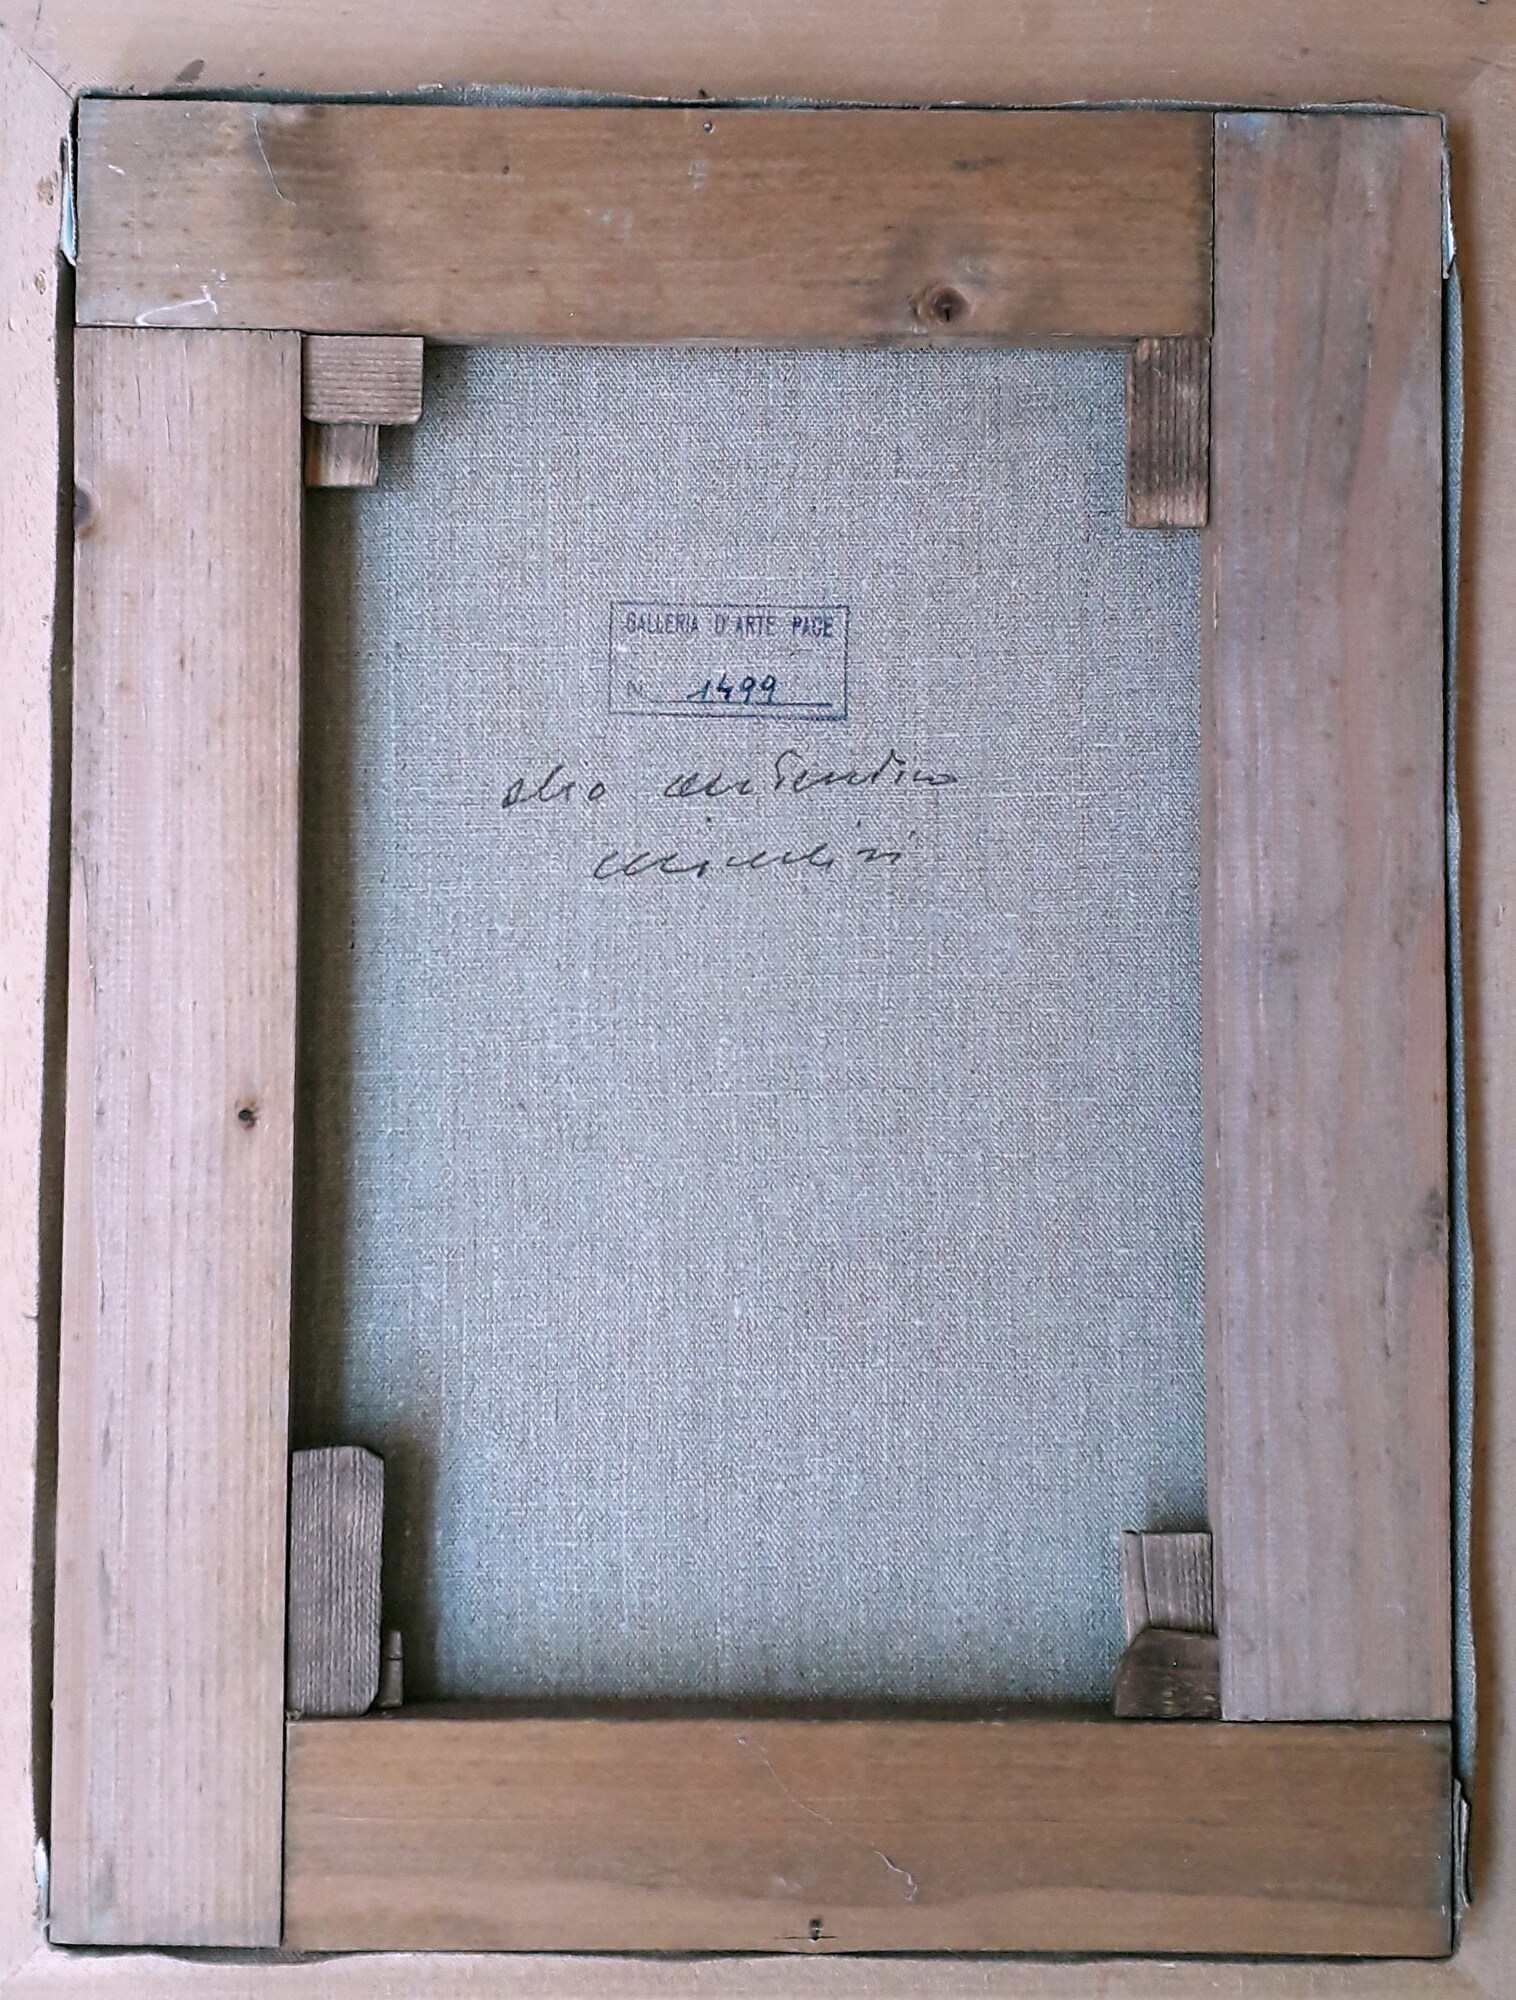 GALLERIA D'ARTE PACE
N. 1499
olio autentico